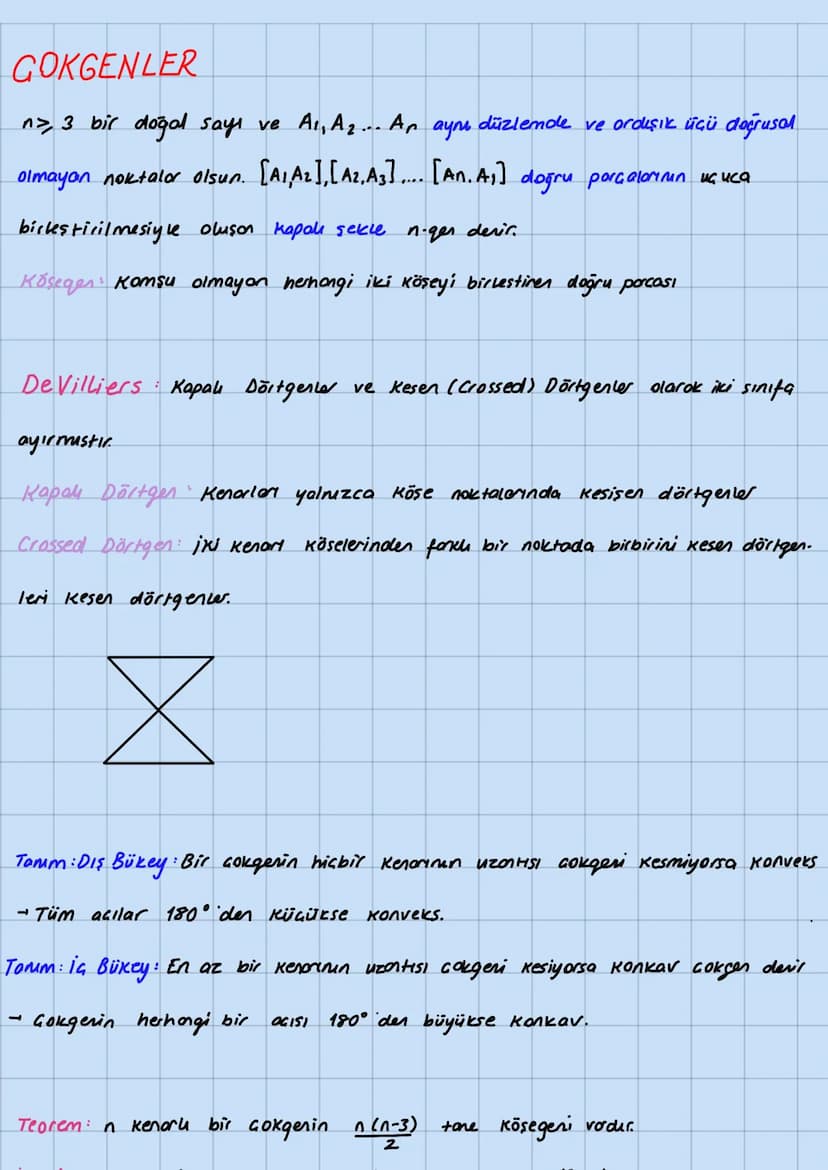 ÇOKGENLER
n≥3 bir doğal sayı ve A₁, A₂ ... Aₙ aynı düzlemde ve ardışık üçü doğrusal
olmayan noktalar olsun. [A₁,A₂],[A₂,A₃],... [Aₙ.A₁] doğru parçalarının uç uca
birleştirilmesiyle oluşan kapalı şekle n-gen denir.
Köşegen: Komşu olmayan herhangi iki köşeyi birleştiren doğru parçası
De Villiers: Kapalı Dörtgenler ve Kesen (Crossed) Dörtgenler olarak iki sınıfa
ayırmıştır.
Kapalı Dörtgen: Kenarları yalnızca köşe noktalarında kesişen dörtgenler
Crossed Dörtgen: İki kenarı köşelerinden farklı bir noktada birbirini kesen dörtgen-
leri kesen dörtgenler.
Tanım: Dış Bükey: Bir çokgenin hiçbir kenarının uzantısı çokgeni kesmiyorsa konveks
→ Tüm açılar 180°'den küçükse konveks.
Tanım: İç Bükey: En az bir kenarının uzantısı çokgeni kesiyorsa konkav çokgen denir
→ Çokgenin herhangi bir açısı 180°'den büyükse konkav.
Teorem: n kenarlı bir çokgenin n(n-3)/2 tane köşegeni vardır.